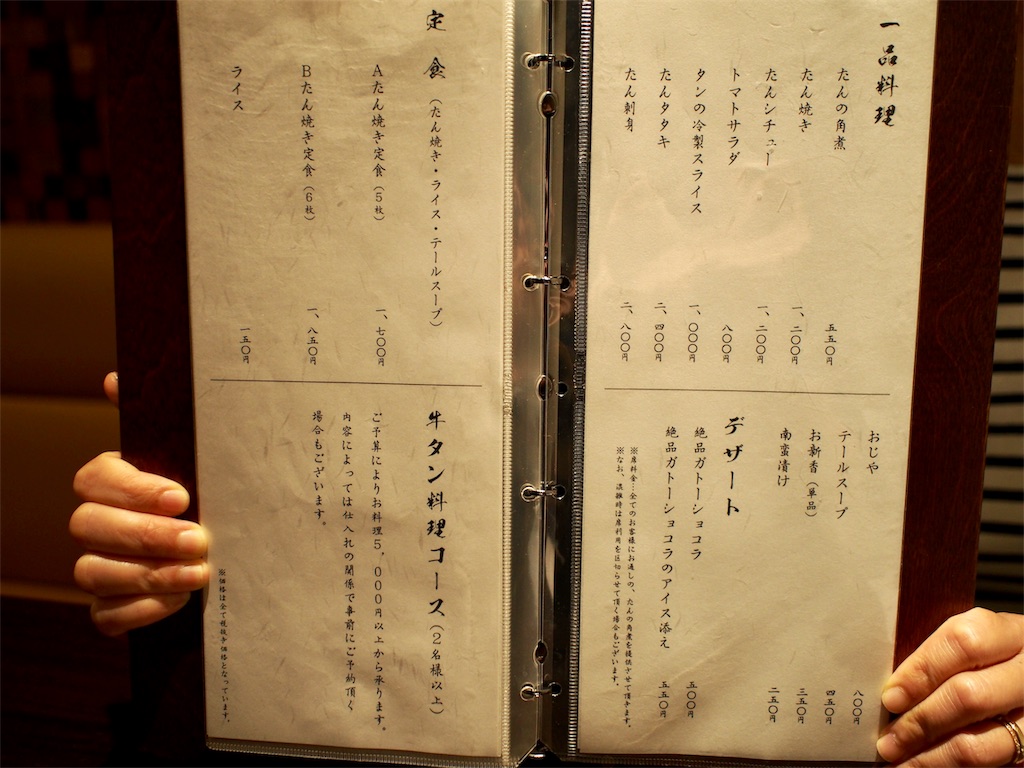 一品料理
たんの角煮 五五〇円
たん焼き 一、二〇〇円
たんシチュー 一、二〇〇円
トマトサラダ 八〇〇円
タンの冷製スライス 一、〇〇〇円
たんタタキ 二、四〇〇円
たん刺身 二、八〇〇円
おじや 八〇〇円
テールスープ 四五〇円
お新香（単品） 三五〇円
南蛮漬け 二五〇円
デザート
絶品ガトーショコラ 五〇〇円
絶品ガトーショコラのアイス添え 五五〇円
※席料金…全てのお客様にお通しの、たんの角煮を提供させて頂きます。
※なお、混雑時は席利用を区切らせて頂く場合もございます。
定食（たん焼き・ライス・テールスープ）
Aたん焼き定食（5枚） 一、七〇〇円
Bたん焼き定食（6枚） 一、八五〇円
ライス 一五〇円
牛タン料理コース（2名様以上）
ご予算によりお料理5，000円以上から承ります。
内容によっては仕入れの関係で事前にご予約頂く
場合もございます。
※価格は全て税抜き価格となっています。